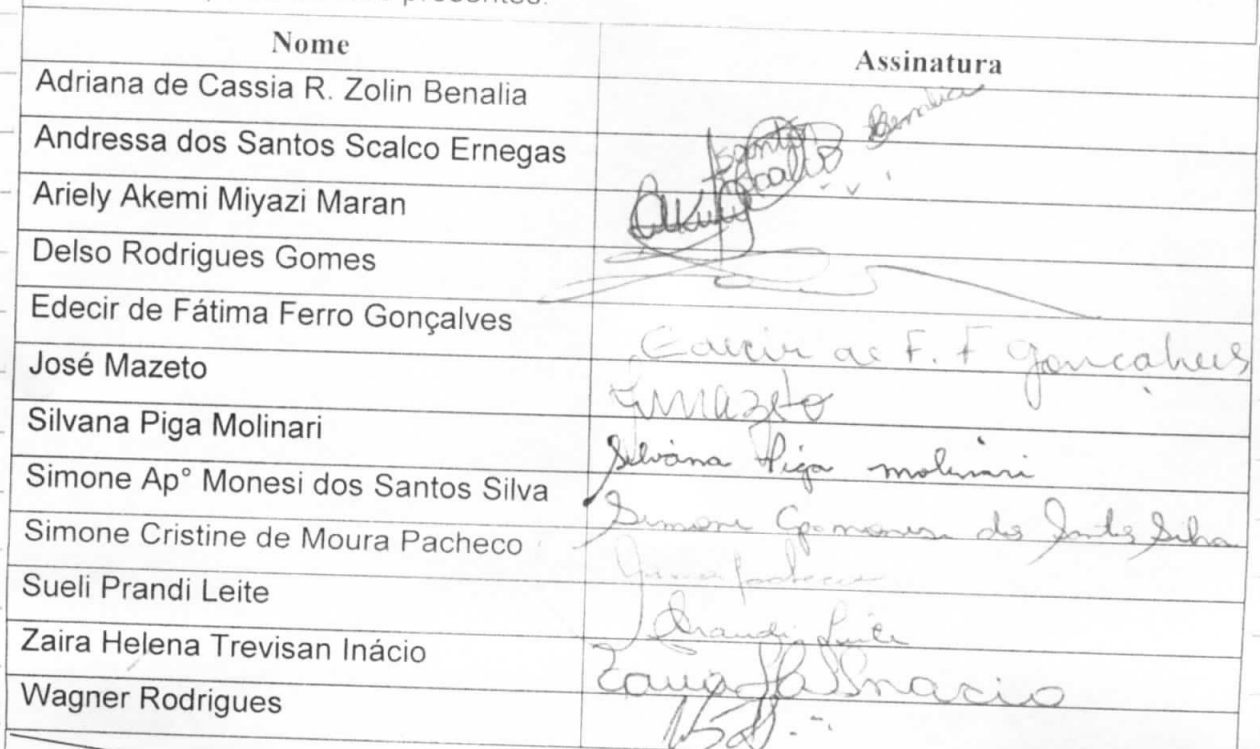 presentes.
Nome Assinatura
Adriana de Cassia R. Zolin Benalia Benalia
Andressa dos Santos Scalco Ernegas Santos Scalco
Ariely Akemi Miyazi Maran
Delso Rodrigues Gomes
Edecir de Fátima Ferro Gonçalves Edecir de F. F Gonçalves
José Mazeto Mazeto
Silvana Piga Molinari Silvana Piga molinari
Simone Ap° Monesi dos Santos Silva Simone Ap monesi dos Santos Silva
Simone Cristine de Moura Pacheco
Sueli Prandi Leite Prandi Leite
Zaira Helena Trevisan Inácio Zaira H Inacio
Wagner Rodrigues